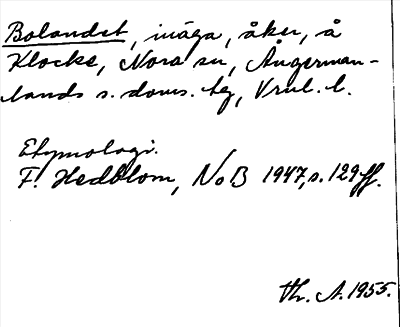 Bolandet, inäga, åker, å
Klocke, Nora sn, Ångerman-
lands s. doms. tg, Vrul. l.
Etymologi.
F. Hedblom, NoB 1947, s. 129 ff.
Th. A. 1955.